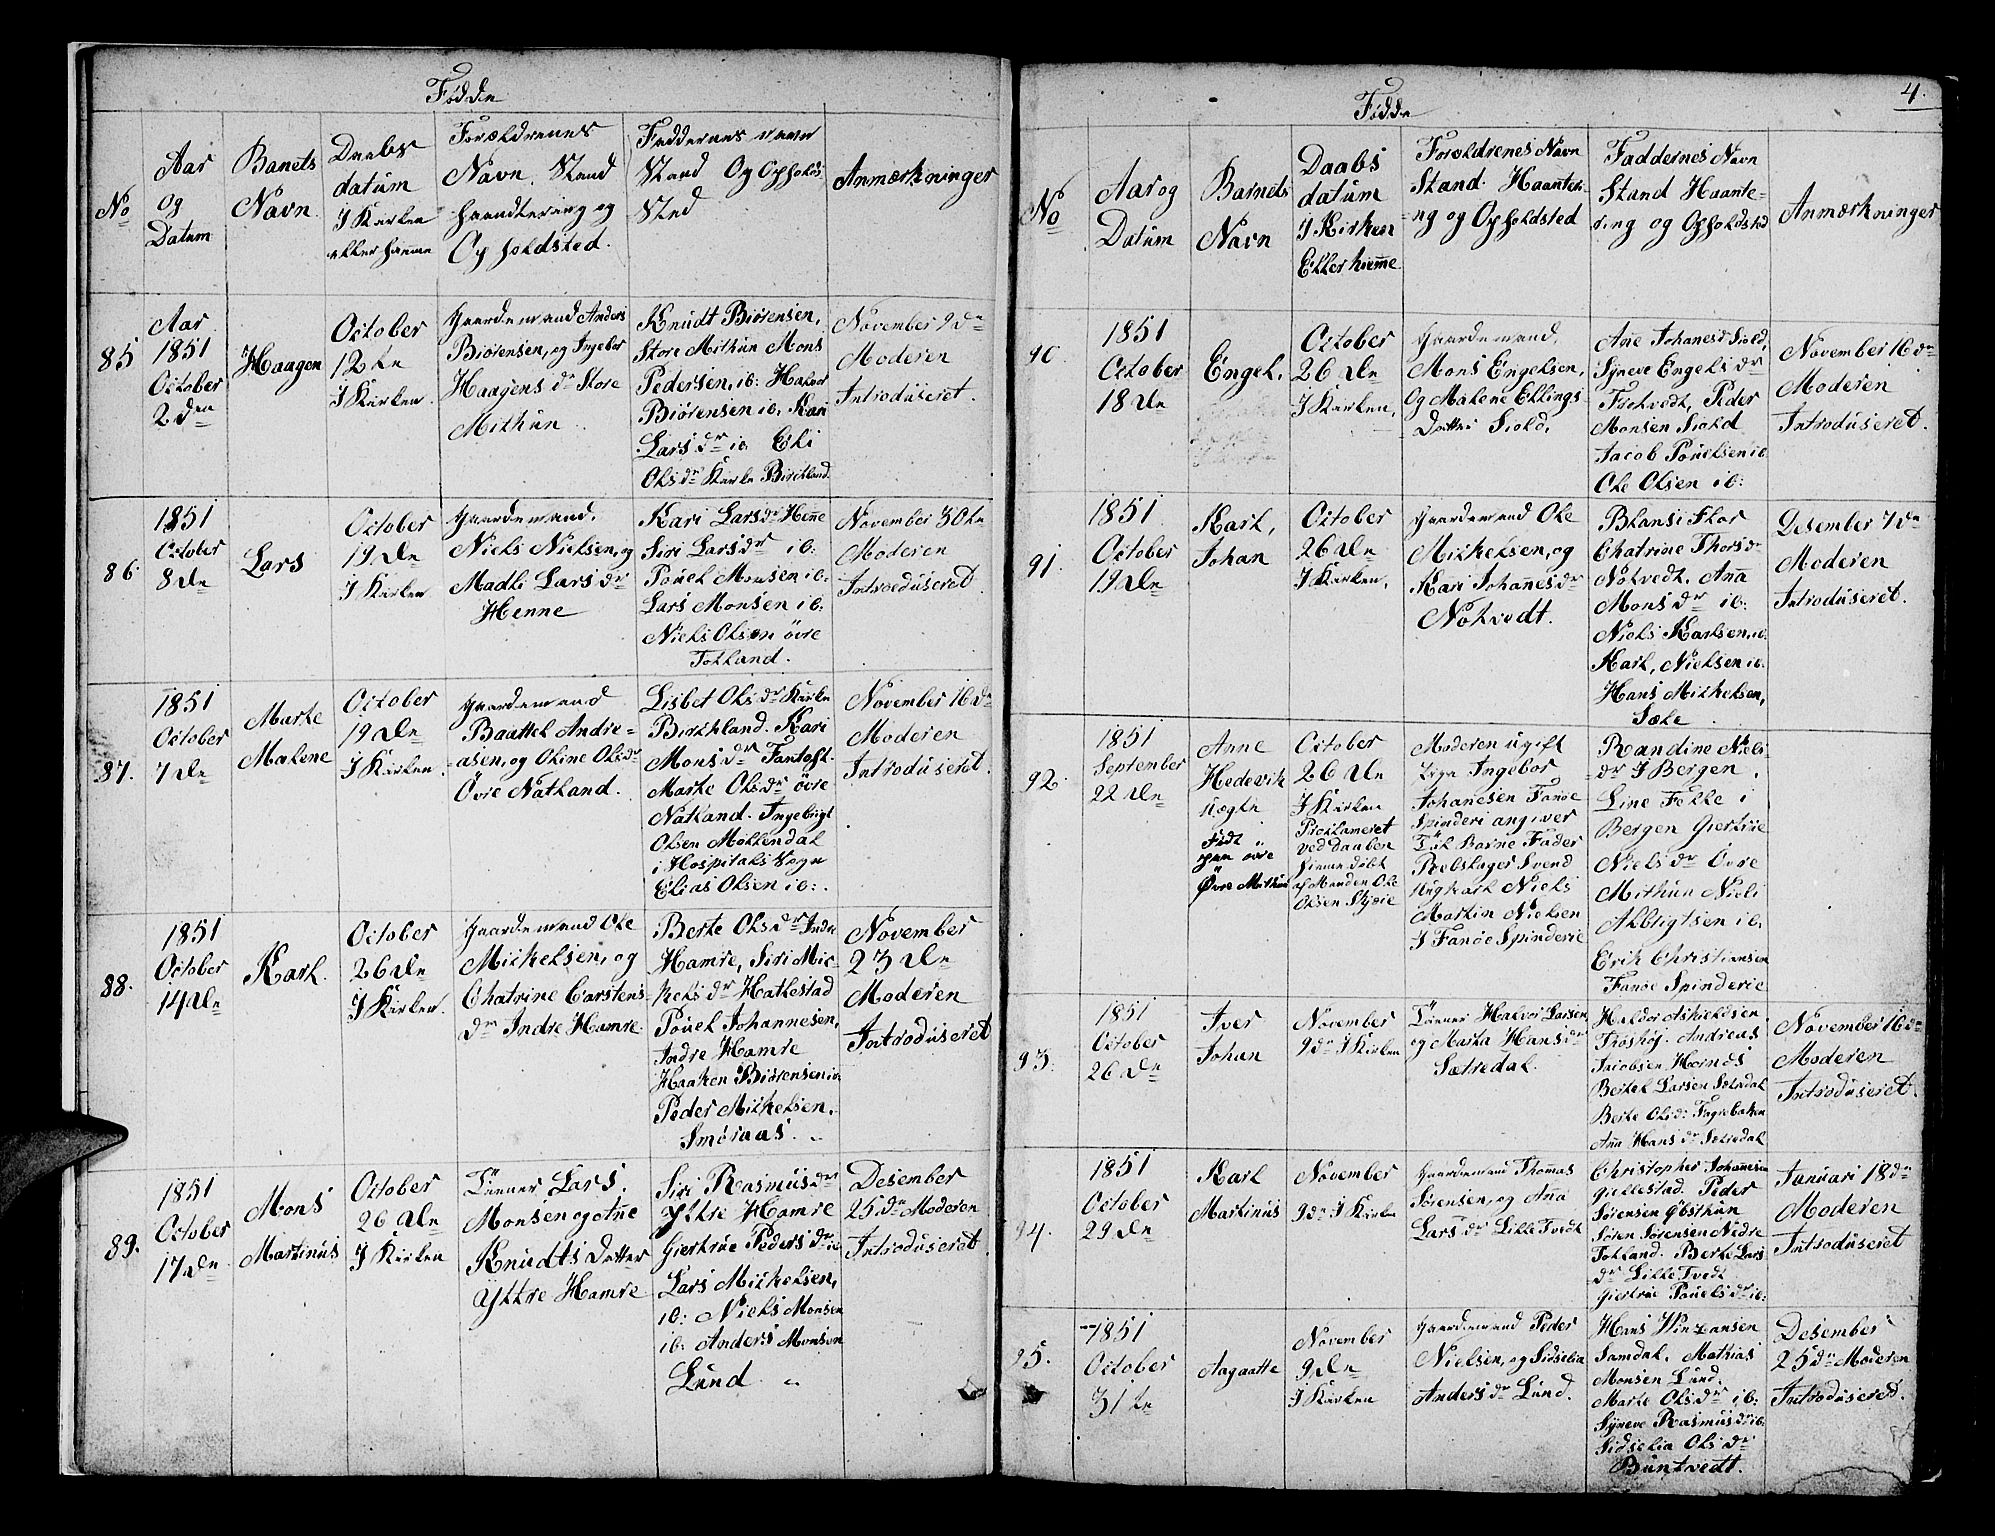 Fødde
No
Aar
Og
Datum
Banets
Navn.
Daabs
datum
I Kirken
eller hieme
Forældrenes
Navn. Stand
haandtering og
Opholdsted.
Faddernes navn
Stand Og Opholds
Sted
Anmærkninger
85
Aar
1851
October
2den
Haagen
October
12te
I Kirken.
Gaardemand Anders
Biørensen, og Ingebor
Haagens dr Store
Mithun.
Knudt Biørensen,
Store Mithun Mons
Pedersen, ib: Halvor
Biørensen ib, Kari
Lars dr ib. Eli
Ols dr Kirke Birchland
November 9de
Moderen
Introduseret.
86.
1851
October
8de
Lars
October
19de
I Kirken
Gaardemand.
Niels Nielsen, og
Madli Lars dr
Henne
Kari Larsdr Henne
Siri Larsdr ib:
Pouel Monsen ib:
Lars Monsen ib:
Niels Olsen övre
Tokland.
November 30te
Moderen
Introduseret.
87.
1851
October
7de
Marte
Malene
October
19de
I Kirken.
Gaardemand
Baattel Andre-
asen, og Oline Olsdr
Övre Natland.
Lisbet Ols dr Kirke
Birchland. Kari
Mons dr Fantoft.
Marte Olsdr övre
Natland. Ingebrigt
Olsen Møllendal
i Hospitals Sogn
Elias Olsen ib:.
November 16de
Moderen
Introduseret.
88.
1851
October
14de
Karl.
October
26de
I Kirken.
Gaardemand Ole
Mikkelsen, og
Chatrine Carstens
dr Indre Hamre.
Berte Olsdr Indre
Hamre, Siri Mic-
kels dr Hatlestad
Pouel Johannesen,
Indre Hamre
Haaken Biörensen ib:
Peder Mikkelsen,
Smöraas.
November
23de
Moderen
Introduseret
89.
1851
October
17de
Mons
Martinus
October
26de
I Kirken
Tönner Lars.
Monsen og Ane
Knudts Datter
Yttre Hamre
Siri Rasmusdr
Yttre Hamre
Giertrue Peders dr ib
Lars Mikkelsen,
ib: Niels Monsen
ib: Anders Monsen
Lund.
Desember
25de Moderen
Introduseret.
Fødde
4.
No
Aar og
Datum
Barnets
Navn
Daabs
datum
I Kirken
Eller hieme
Foreldrenes Navn
Stand. Haanteri-
ng og Opholdsted
Faddernes Navn
Stand Haante-
ring og Opholdsted
Anmærkninger
90.
1851
October
18de
Engel.
October
26de
I Kirken,
Gaardemand,
Mons Engelsen,
Og Malene Ellings
Datter Siold,
Ane Johanesd Siold,
Syneve Engels dr
Tvetvedt, Peder
Monsen Siold
Jacob Pouelsen ib.
Ole Olsen ib:
November 16de
Moderen
Introduseret.
91.
1851
October
19de
Karl,
Johan
October
26de
I Kirken.
Gaardemand Ole
Mikkelsen, og
Kari Johanesdr
Nøtvedt.
Blansi Flor
Chatrine Thorsdr
Nøtvedt. Anna
Mons dr ib:
Niels Karlsen, ib:
Karl, Nielsen ib.
Hans Mikkelsen,
Sæle.
Desember 7de
Moderen
Introduseret.
92.
1851
September
22de
Anne
Hedevik
uægte
Født
paa övre
Øvre Mithun
October
26de
I Kirken
Proclameret
ved Daaben
hieme døbt
af Manden Ole
Olsen Skjøie
Moderen ugift
Pige Ingebor
Johanesen Fanøe
Spinderi angiver
Til Barne Fader
Rebslager Svend
Ungkarl Niels
Martin Nielsen
I Fanöe Spinderie
Randine Niels
dr I Bergen.
Line Felle i
Bergen Giertrue
Niels dr Övre
Mithun Niels
Albrigtsen ib.
Erik Christiansen
Fanöe Spinderie
93.
1851
October
26de
Iver
Johan
November
9de I Kirken
Tönner Halvor Larsen,
og Marta Hansdr
Sætredal.
Haldor Aslaksen
Troshöj. Andreas
Jacobsen Hornes
Bertel Larsen Sætredal
Berte Olsdr Fagrebaken
Ana Hans dr Sætredal
November 16de
Moderen
Introduseret.
94.
1851
October
29de
Karl
Martinus
November
9de I Kirken
Gaardemand Thomas
Sörensen, og Ana
Lars dr Lille Tvedt
Christopher Johanesen
Giellestad. Peder
Sörensen Øbsthun
Sören Sörensen Nedre
Tokland. Berte Lars
dr Lille Tvedt
Giertrue Pouelsdr ib:
Januari 18de
Moderen
Introduseret
95.
1851
October
31te
Aagaatte
November
9de
I Kirken
Gaardemand Peder
Nielsen, og Sidselia
Anders dr Lund.
Hans Winzensen
Samdal. Mathias
Monsen Lund.
Marte Olsdr ib:
Syneve Rasmusdr ib:
Sidselia Ols dr
Buntvedt.
Desember
25de Moderen
Introduseret.